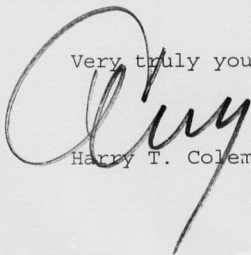 Very truly you
Harry T. Colem